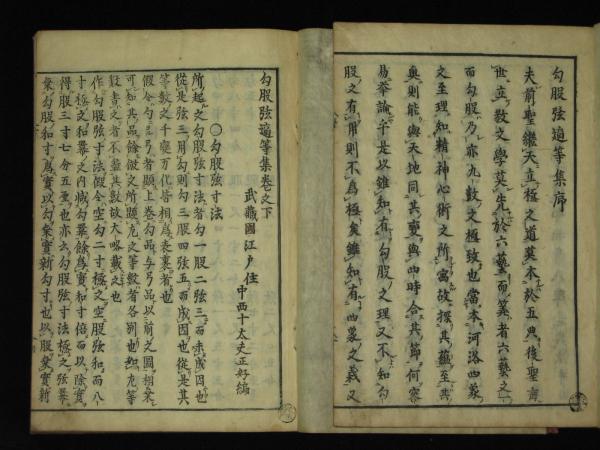 勾股弦適等集序
夫前聖繼天立極之道莫本於五典後聖濟
世立教文學莫先於六藝而筭者六藝之一
而勾股乃亦九數之極致也當本河洛四象
之至理知精神心術之所寓故探其蘊至其
奧則能與天地同其變與四時合其節何容
易論乎是以雖知有勾股之理又不知勾
股之有用則不為極矣雖知有四象之義又
勾股弦適等集卷之下
武藏國江戸住
中西十太夫正好編
〇勾股弦寸法
所起之勾股弦寸法者勾一股二弦三而未成因也
從是弦三用勾則勾三股四弦五而成因也從是其
等數之千變万化皆相為表裏者也
假令勾与弓者顯上卷勾品与弓品以前之圖相乗
可知其品餘倣之所顯之等數者各別也如等
數責之者不盡其數故大略載之也
作勾股弦寸法假令空勾二寸極之空股弦和而八
寸極之和冪之内減勾冪餘為實和寸倍而以除實
得股三寸七分五釐也亦云勾股弦寸法極之弦冪
乗勾股和寸為實以勾乗實新勾寸也以股乗實新